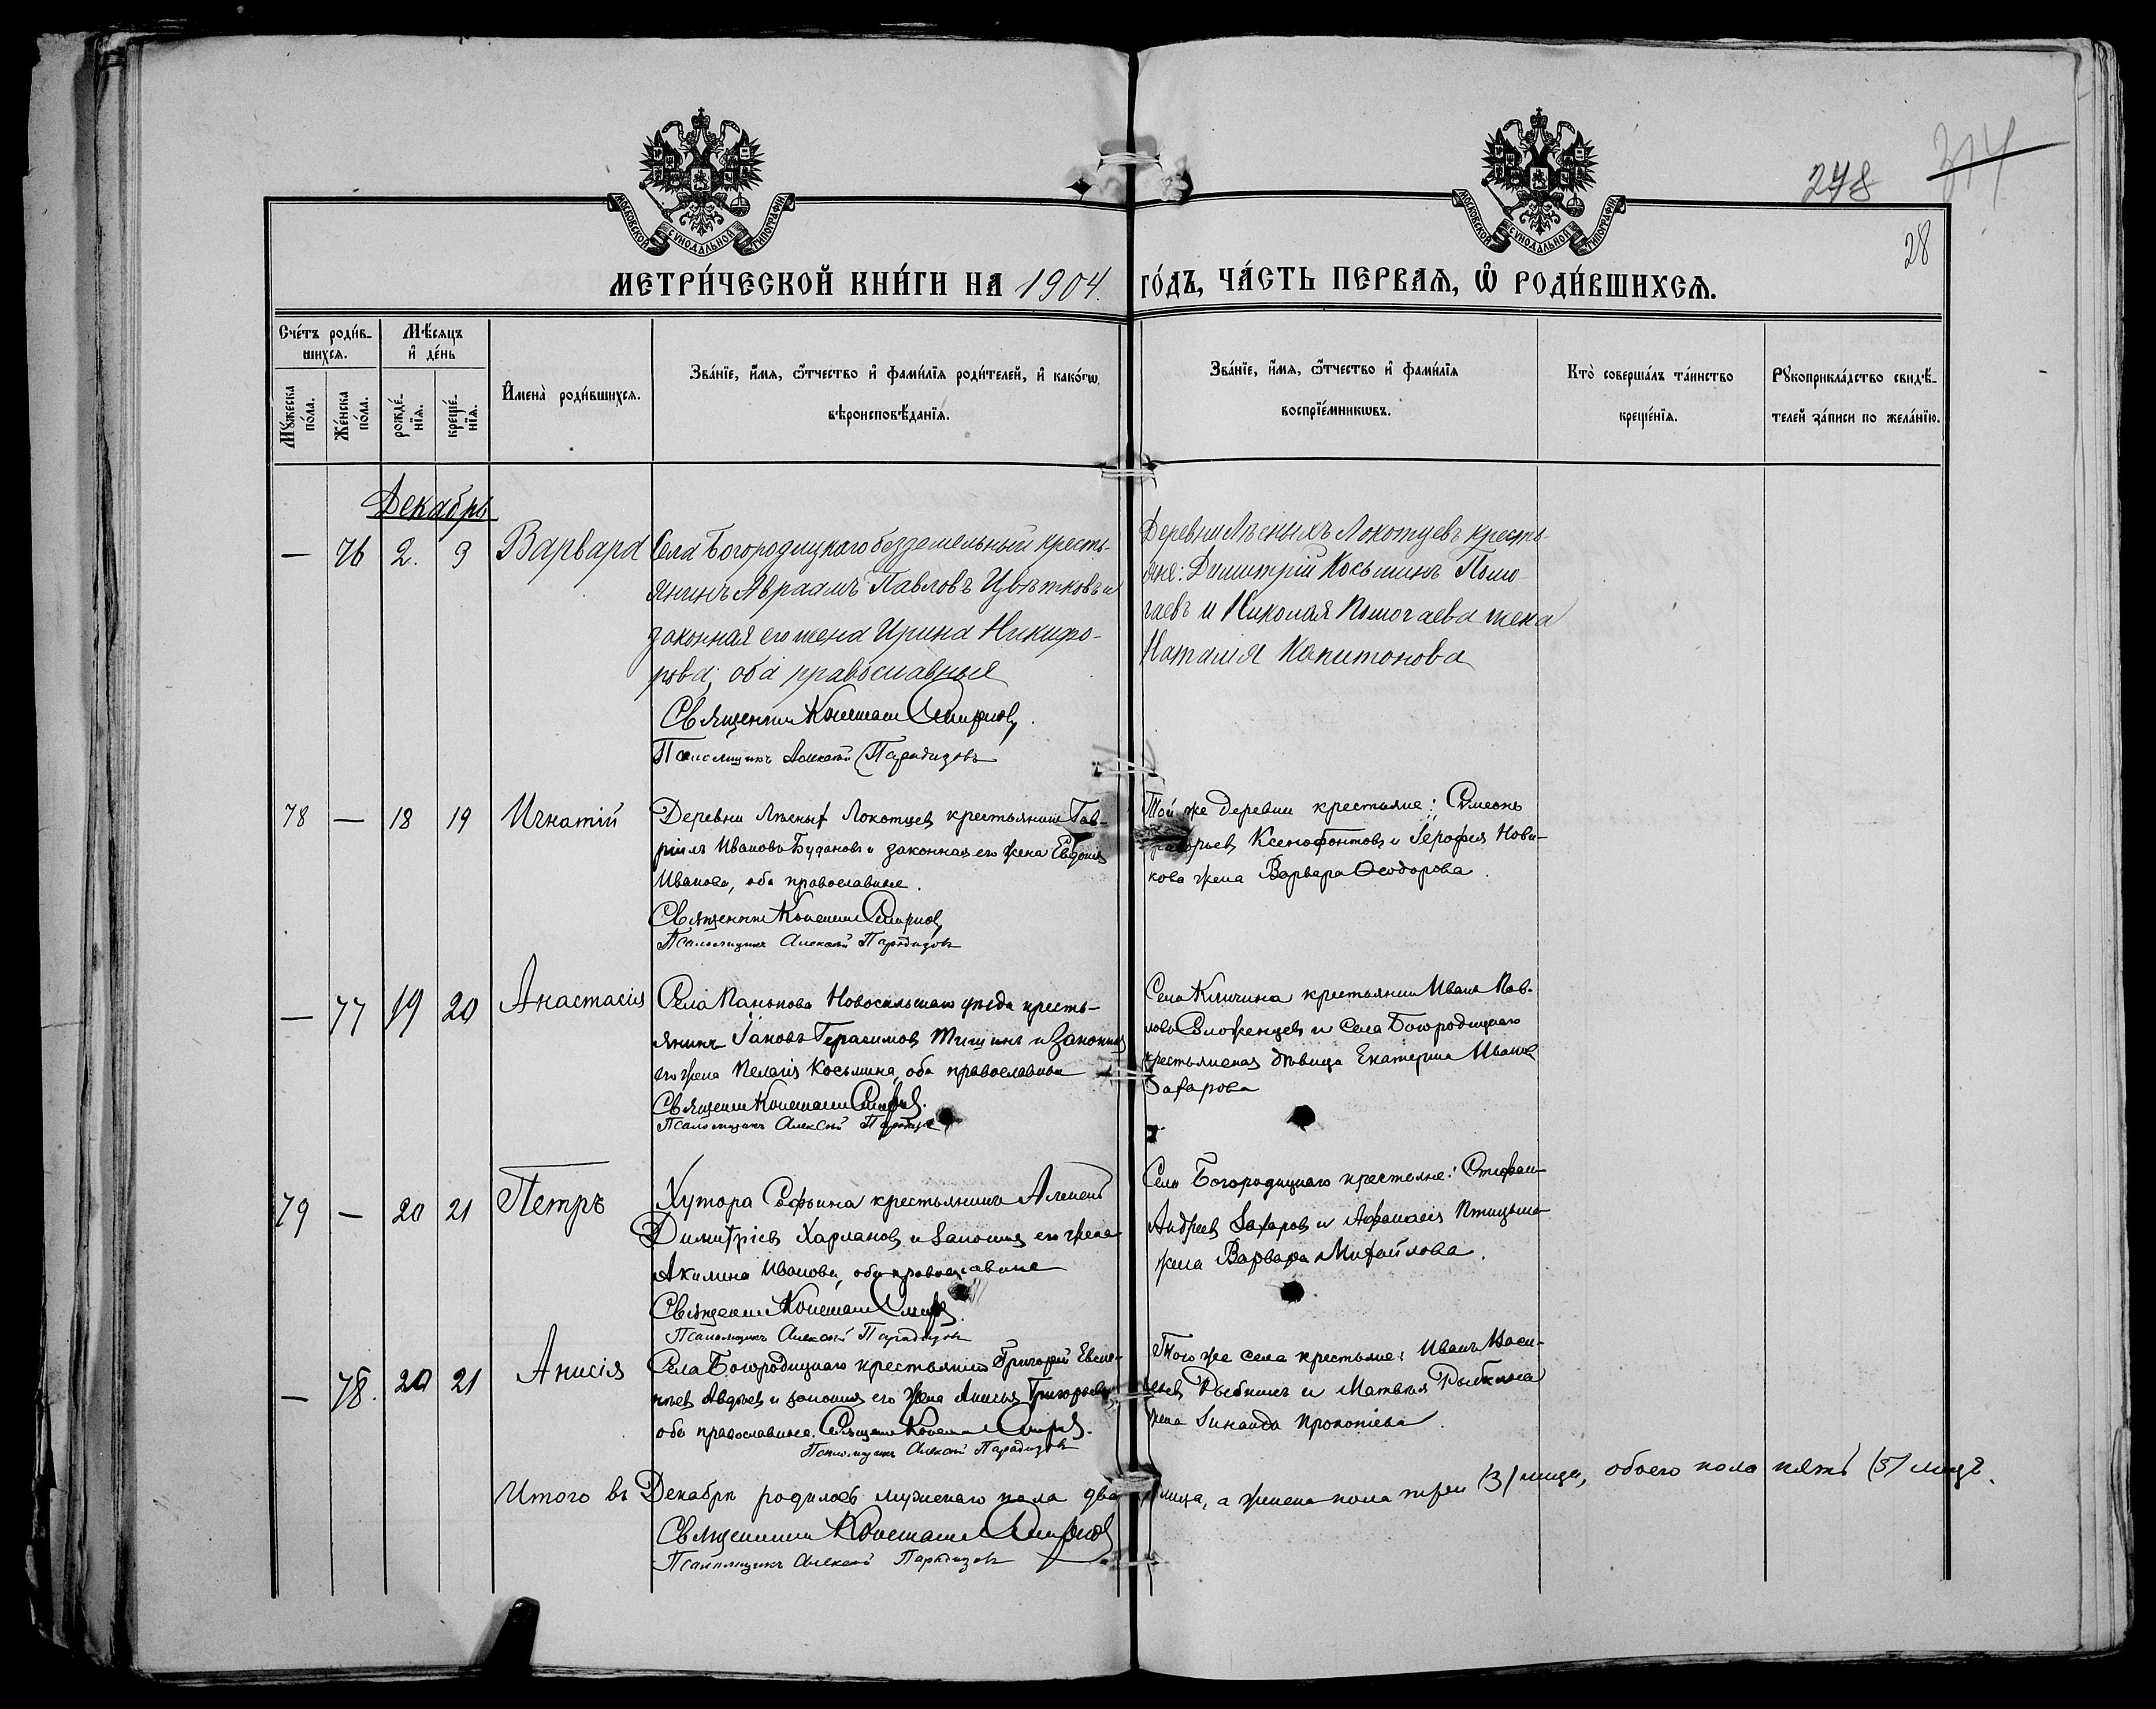 МОСКОВСКОЙ СУНОДАЛЬНОЙ ТИПОГРАФІИ
МОСКОВСКОЙ СУНОДАЛЬНОЙ ТИПОГРАФІИ
314
278
28
МЕТРИ́ЧЕСКОЙ КНИ́ГИ НА 1904. ГО́ДЪ, ЧА́СТЬ ПЕРВАѦ, Ѡ҆ РОДИ́ВШИХСѦ.
Сче́тъ роди́в-
шихсѧ.
Мꙋ́жеска по́ла.
Же́нска по́ла.
Мѣ́сѧцъ
и҆ де́нь
рожде́-
нїѧ.
креще́-
нїѧ.
И҆мена̀ роди́вшихсѧ.
Зва́нїе, и҆́мѧ, ѻ҆́тчество и҆ фами́лїѧ роди́телей, и҆ како́гѡ
вѣроисповѣ́данїѧ.
Зва́нїе, и҆́мѧ, ѻ҆́тчество и҆ фами́лїѧ
воспрїе́мникѡвъ.
Кто̀ соверша́лъ та́инство
креще́нїѧ.
Рꙋкоприкла́дство свидѣ́-
телей за́писи по жела́нїю.
Декабрь
— 76 2. 9 Варвара
Села Богородицкаго безземельный кресть-
янинъ Авраамъ Павловъ Цвѣтковъ и
законная его жена Ирина Никифо-
рова, оба православные
Священникъ Смирновъ
Псаломщикъ Алексѣй Парадизовъ
Деревни Лѣсныхъ Локотцевъ кресть-
яне: Димитрій Косьминъ Помо-
гаевъ и Николая Помогаева жена
Наталия Капитонова
78 — 18 19 Игнатій
Деревни Лѣсных Локотцев крестьянинъ Гав-
ріилъ Ивановъ Будановъ и законная его жена Евдокія
Иванова, оба православные.
Священникъ Смирновъ
Псаломщикъ Алексѣй Парадизовъ
Той же деревни крестьяне: Симеонъ
Григорьев Ксенофонтовъ и Іерофея Нови-
кова жена Варвара Ѳеодорова.
— 77 19 20 Анастасія
Села Панькова Новосильскаго уѣзда кресть-
янинъ Іаковъ Герасимовъ Тишинъ и законная
его жена Пелагія Косьмина, оба православные
Священникъ Смирновъ.
Псаломщикъ Алексѣй Парадизовъ
Села крестьянинъ Иванъ Пав-
ловъ и села Богородицкаго
крестьянская дѣвица Екатерина Иванова
Захарова
79 — 20 21 Петръ
Хутора Софьина крестьянинъ Алексѣй
Димитріевъ Харламовъ и законная его жена
Акилина Иванова, оба православные
Священникъ Смирновъ.
Псаломщикъ Алексѣй Парадизовъ
Села Богородицкаго крестьяне: Стефанъ
Андреев Захаровъ и Аѳанасія Птицына
жена Варвара Михайлова.
— 78. 20 21 Анисія
Села Богородицкаго крестьянинъ Григорій
Авдѣев и законная его жена Анисья Григорьева,
оба православные. Священникъ Смирновъ.
Псаломщикъ Алексѣй Парадизовъ
Того же села крестьяне: Иванъ Васи-
льев Рыбкинъ и Матвѣя Рыбкина
жена Зинаида Прокопіева.
Итого въ Декабрѣ родилось мужскаго пола два лица, а женска пола три (3) лица, обоего пола пять (5) лицъ.
Священникъ Смирновъ
Псаломщикъ Алексѣй Парадизовъ